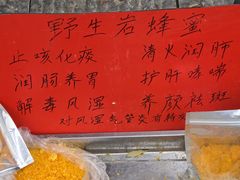 野生岩蜂蜜
止咳化痰 清火润肺
润肠养胃 护肝哮喘
解毒风湿 养颜祛斑
对风湿气管炎有特